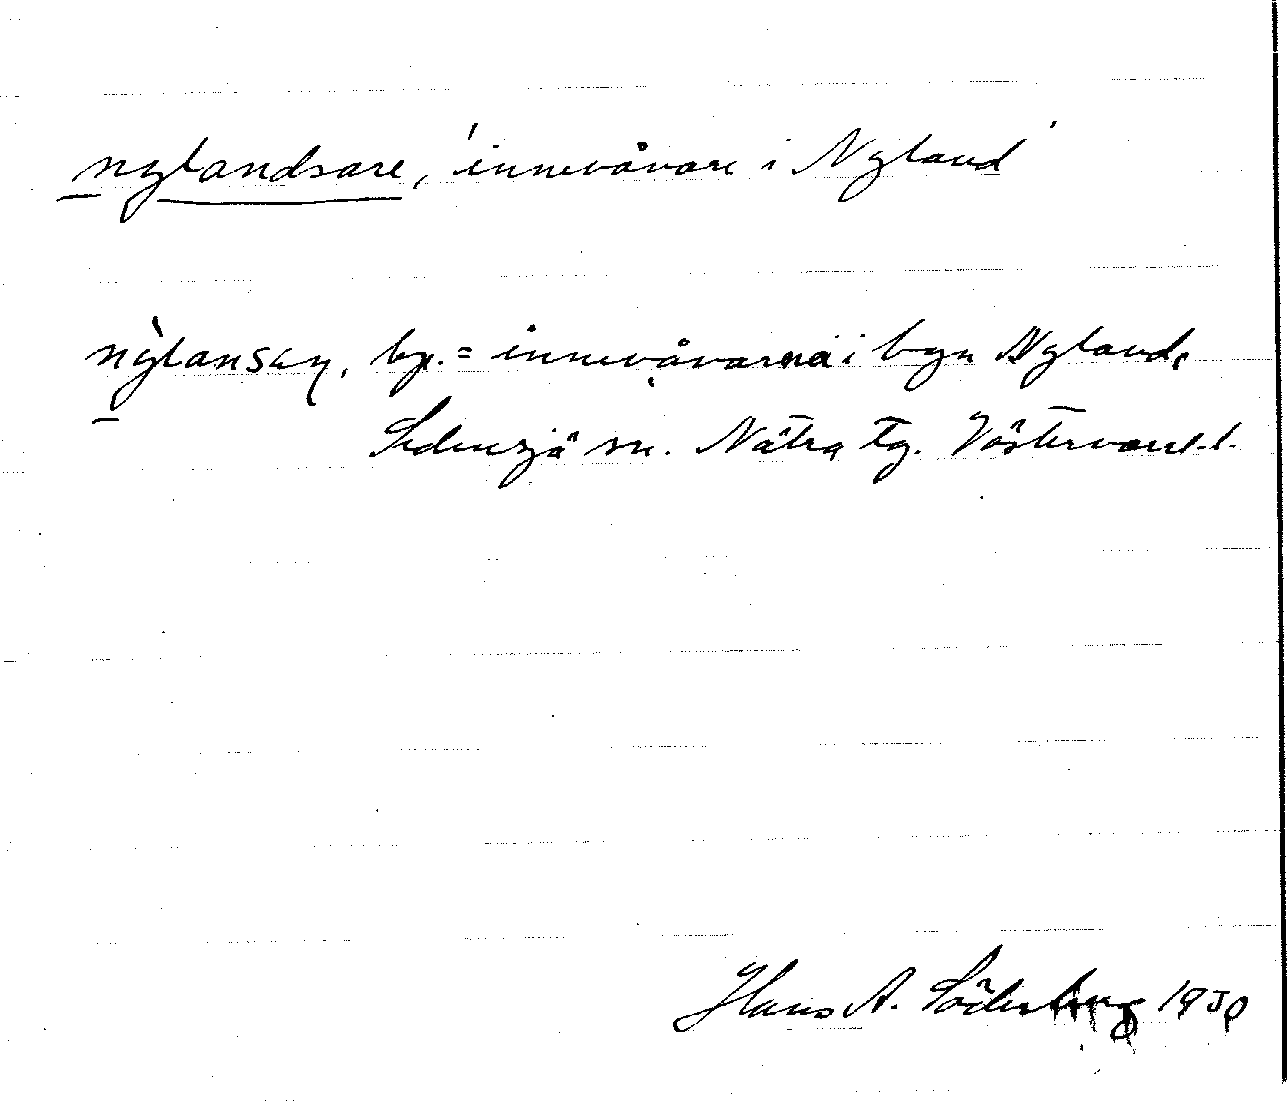 nylandsare, 'innevånare i Nyland'
nỳlansaɳ, bp. = innevånarna i byn Nyland,
Sidensjö sn. Nätra tg. Västernorrl. l.
Hans A. Söderberg 1950